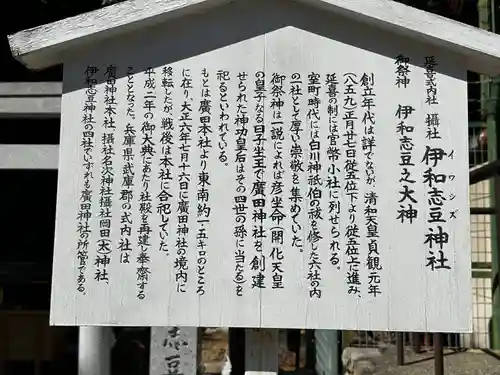 延喜式内社 摂社 伊和志豆神社
イワシズ
御祭神 伊和志豆之大神
創立年代は詳でないが、清和天皇貞観元年
(八五九)正月廿七日従五位下より従五位上に進み、
延喜の制には官幣小社に列せられる。
室町時代には白川神祇伯の祓を修した六社の内
の一社として厚い崇敬を集めていた。
御祭神は一説によれば彦坐命(開化天皇
の皇子なる日子坐王で廣田神社を創建
せられた神功皇后はその四世の孫に当たる)を
祀るといわれている。
もとは廣田本社より東南約一・五キロのところ
に在り、大正六年七月十六日に廣田神社の境内に
移転したが、戦後は本社に合祀していた。
平成二年の御大典にあたり社殿を再建し奉斎する
こととなった。兵庫県武庫郡の式内社は
廣田神社本社、摂社名次神社、摂社岡田(太)神社、
伊和志豆神社の四社でいずれも廣田神社の所管である。
志豆